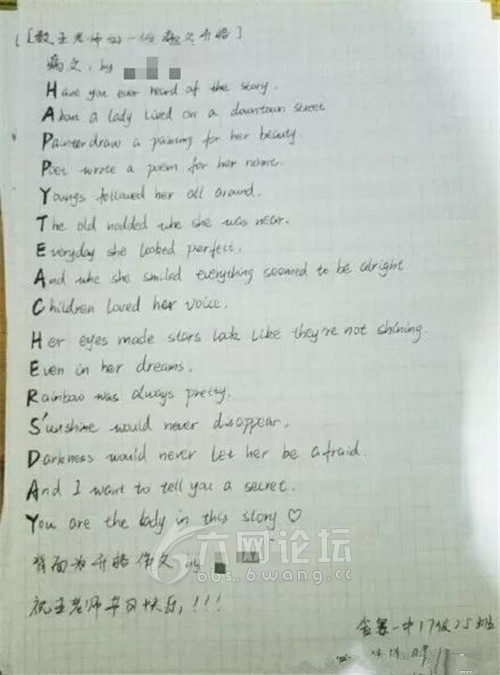 病文, by
Have you ever heard of the story.
About a lady lived on a downtown street
Painter draw a painting for her beauty.
Poet wrote a poem for her name.
Youngs followed her all around.
The old nodded whe she was near.
Everyday she looked perfect.
And whe she smiled everything seemed to be alright
Children loved her voice.
Her eyes made stars look like they're not shining.
Even in her dreams.
Rainbow was always pretty.
S'unshine would never disappear.
Darkness would never let her be afraid.
And I want to tell you a secret.
You are the lady in this story ♡
背面为 作文 by
祝王老师节日快乐!!!
一中17级25班
六网论坛
bbs.6wang.cc